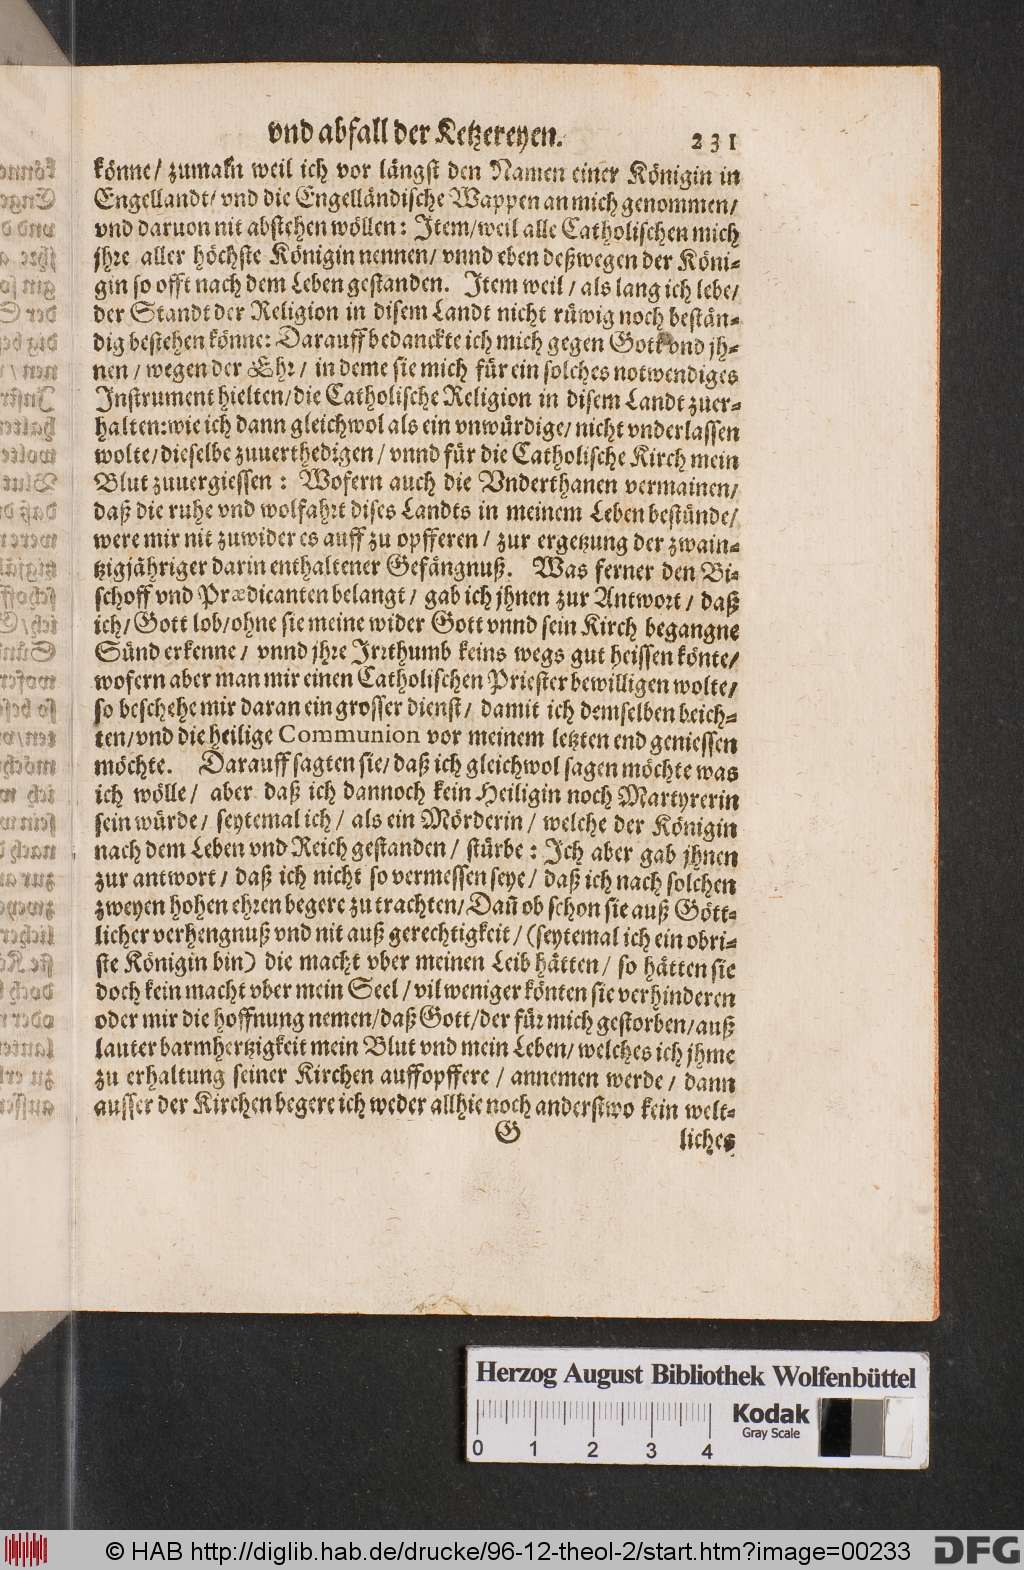 vnd abfall der Ketzereyen. 231
könne/ zumaln weil ich vor längst den Namen einer Königin in
Engellandt/ vnd die Engelländische Wappen an mich genommen/
vnd daruon nit abstehen wöllen: Item/weil alle Catholischen mich
jhre aller höchste Königin nennen/ vnnd eben deßwegen der Köni-
gin so offt nach dem Leben gestanden. Item weil / als lang ich lebe/
der Standt der Religion in disem Landt nicht rüwig noch bestän-
dig bestehen könne: Darauff bedanckte ich mich gegen Gott vnd jh-
nen / wegen der Ehr / in deme sie mich für ein solches notwendiges
Instrument hielten/die Catholische Religion in disem Landt zuer-
halten:wie ich dann gleichwol als ein vnwürdige/ nicht vnderlassen
wolte/dieselbe zuuerthedigen / vnnd für die Catholische Kirch mein
Blut zuuergiessen : Wofern auch die Vnderthanen vermainen/
daß die ruhe vnd wolfahrt dises Landts in meinem Leben bestünde/
were mir nit zuwider es auff zu opfferen / zur ergetzung der zwain-
tzigjähriger darin enthaltener Gefängnuß. Was ferner den Bi-
schoff vnd Prædicanten belangt / gab ich jhnen zur Antwort / daß
ich/ Gott lob/ohne sie meine wider Gott vnnd sein Kirch begangne
Sünd erkenne / vnnd jhre Irrthumb keins wegs gut heissen könte/
wofern aber man mir einen Catholischen Priester bewilligen wolte/
so beschehe mir daran ein grosser dienst / damit ich demselben beich-
ten/vnd die heilige Communion vor meinem letzten end geniessen
möchte. Darauff sagten sie/ daß ich gleichwol sagen möchte was
ich wölle / aber daß ich dannoch kein Heiligin noch Martyrerin
sein würde/ seytemal ich / als ein Mörderin / welche der Königin
nach dem Leben vnd Reich gestanden / stürbe : Ich aber gab jhnen
zur antwort / daß ich nicht so vermessen seye / daß ich nach solchen
zweyen hohen ehren begere zu trachten/ Dañ ob schon sie auß Gött-
licher verhengnuß vnd nit auß gerechtigkeit / (seytemal ich ein obri-
ste Königin bin) die macht vber meinen Leib hätten / so hätten sie
doch kein macht vber mein Seel / vil weniger könten sie verhinderen
oder mir die hoffnung nemen/daß Gott/der für mich gestorben/auß
lauter barmhertzigkeit mein Blut vnd mein Leben/ welches ich jhme
zu erhaltung seiner Kirchen auffopffere / annemen werde / dann
ausser der Kirchen begere ich weder allhie noch anderstwo kein welt-
G liches
Herzog August Bibliothek Wolfenbüttel
0 1 2 3 4
Kodak
Gray Scale
© HAB http://diglib.hab.de/drucke/96-12-theol-2/start.htm?image=00233
DFG